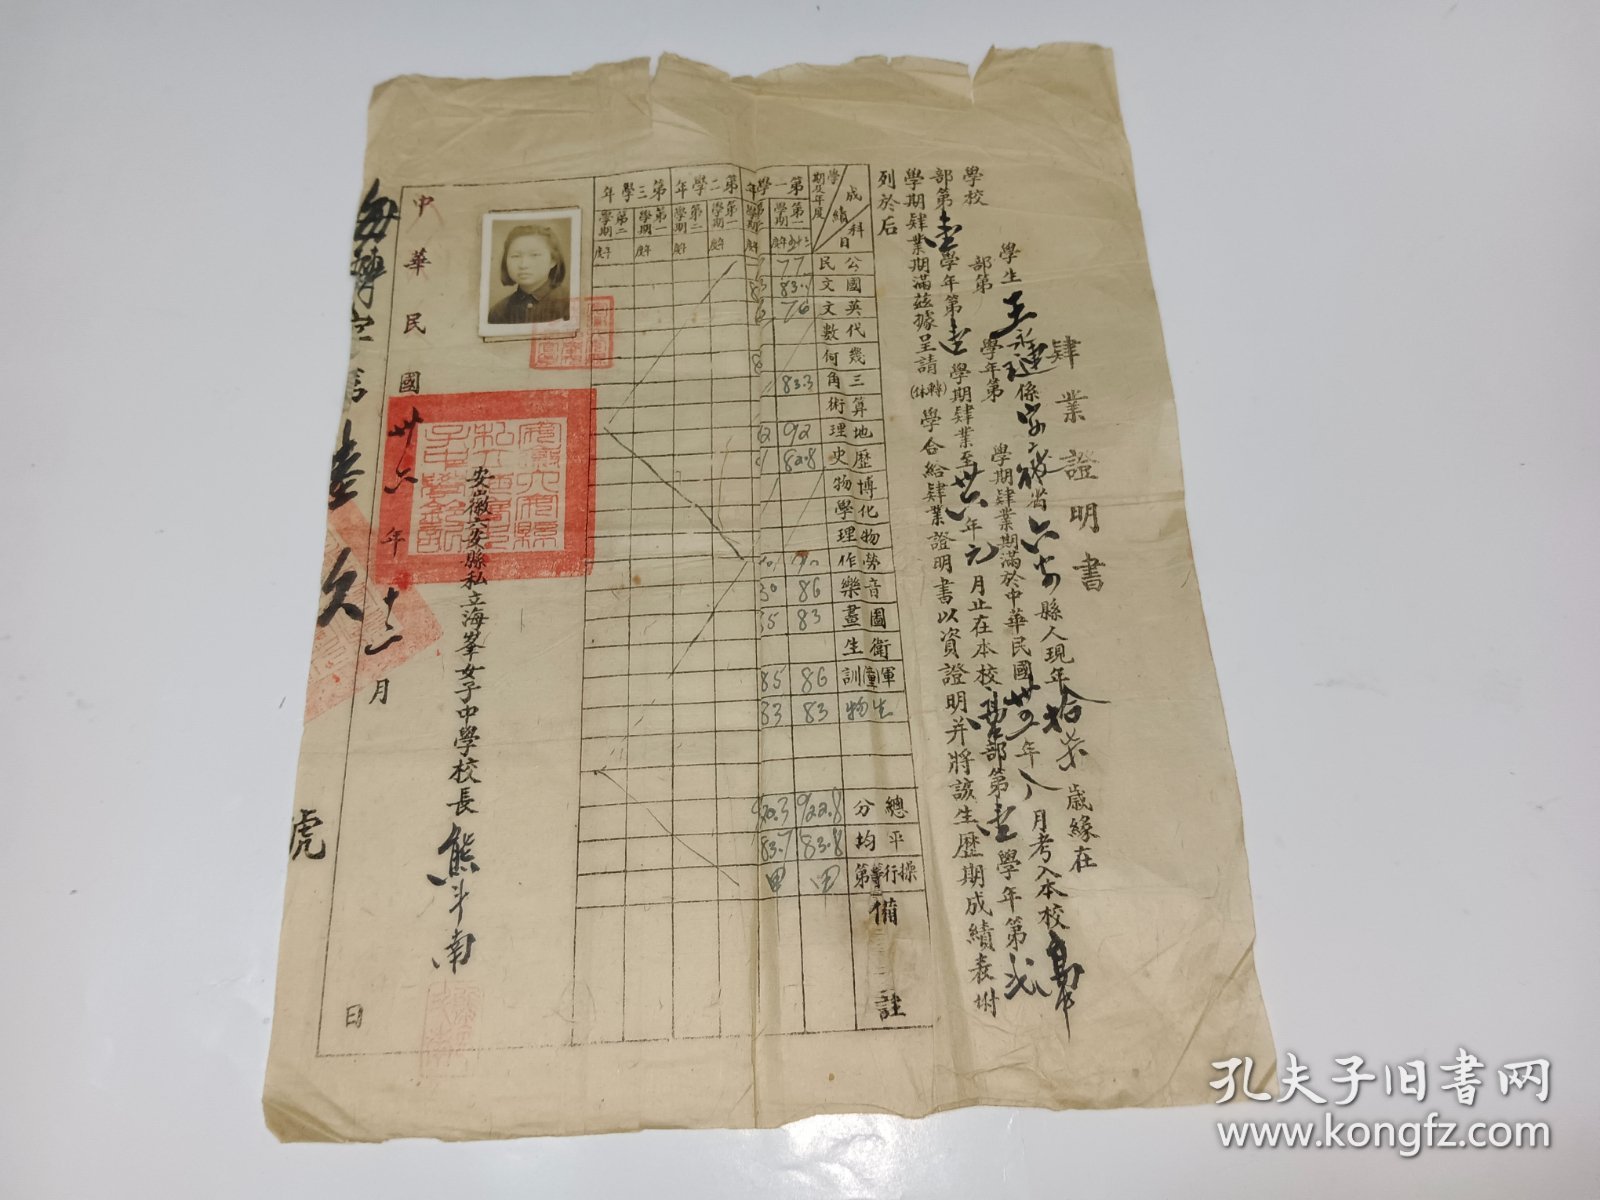 肄業證明書
學生王永璉係安徽省六安縣人現年拾柒歲緣在
學校 部第 學年第 學期肄業期滿於中華民國卅四年八月考入本校高中
部第壹學年第壹學期肄業至卅六年元月止在本校高中部第壹學年第弍
學期肄業期滿茲據呈請(轉休)學合給肄業證明書以資證明并將該生歷期成績表附
列於后
成績 科目 學期及年度
公民
國文
英文
代數
幾何
三角
算術
地理
歷史
博物
化學
物理
勞作
音樂
圖畫
衛生
軍童訓
生物
總分
平均
操行等第
備註
第一學年
第一學期
77
83.1
76
83.3
92
82.8
86
83
86
83
922.8
83.8
甲
85
83
83.7
甲
第二學年
第一學期 年度
第二學期 年度
第三學年
第一學期 年度
第二學期 年度
安徽六安縣私立海峯女子中學校長 熊斗南
中華民國卅六年十二月 日
海轉字第壹 號
孔夫子旧書网
www.kongfz.com